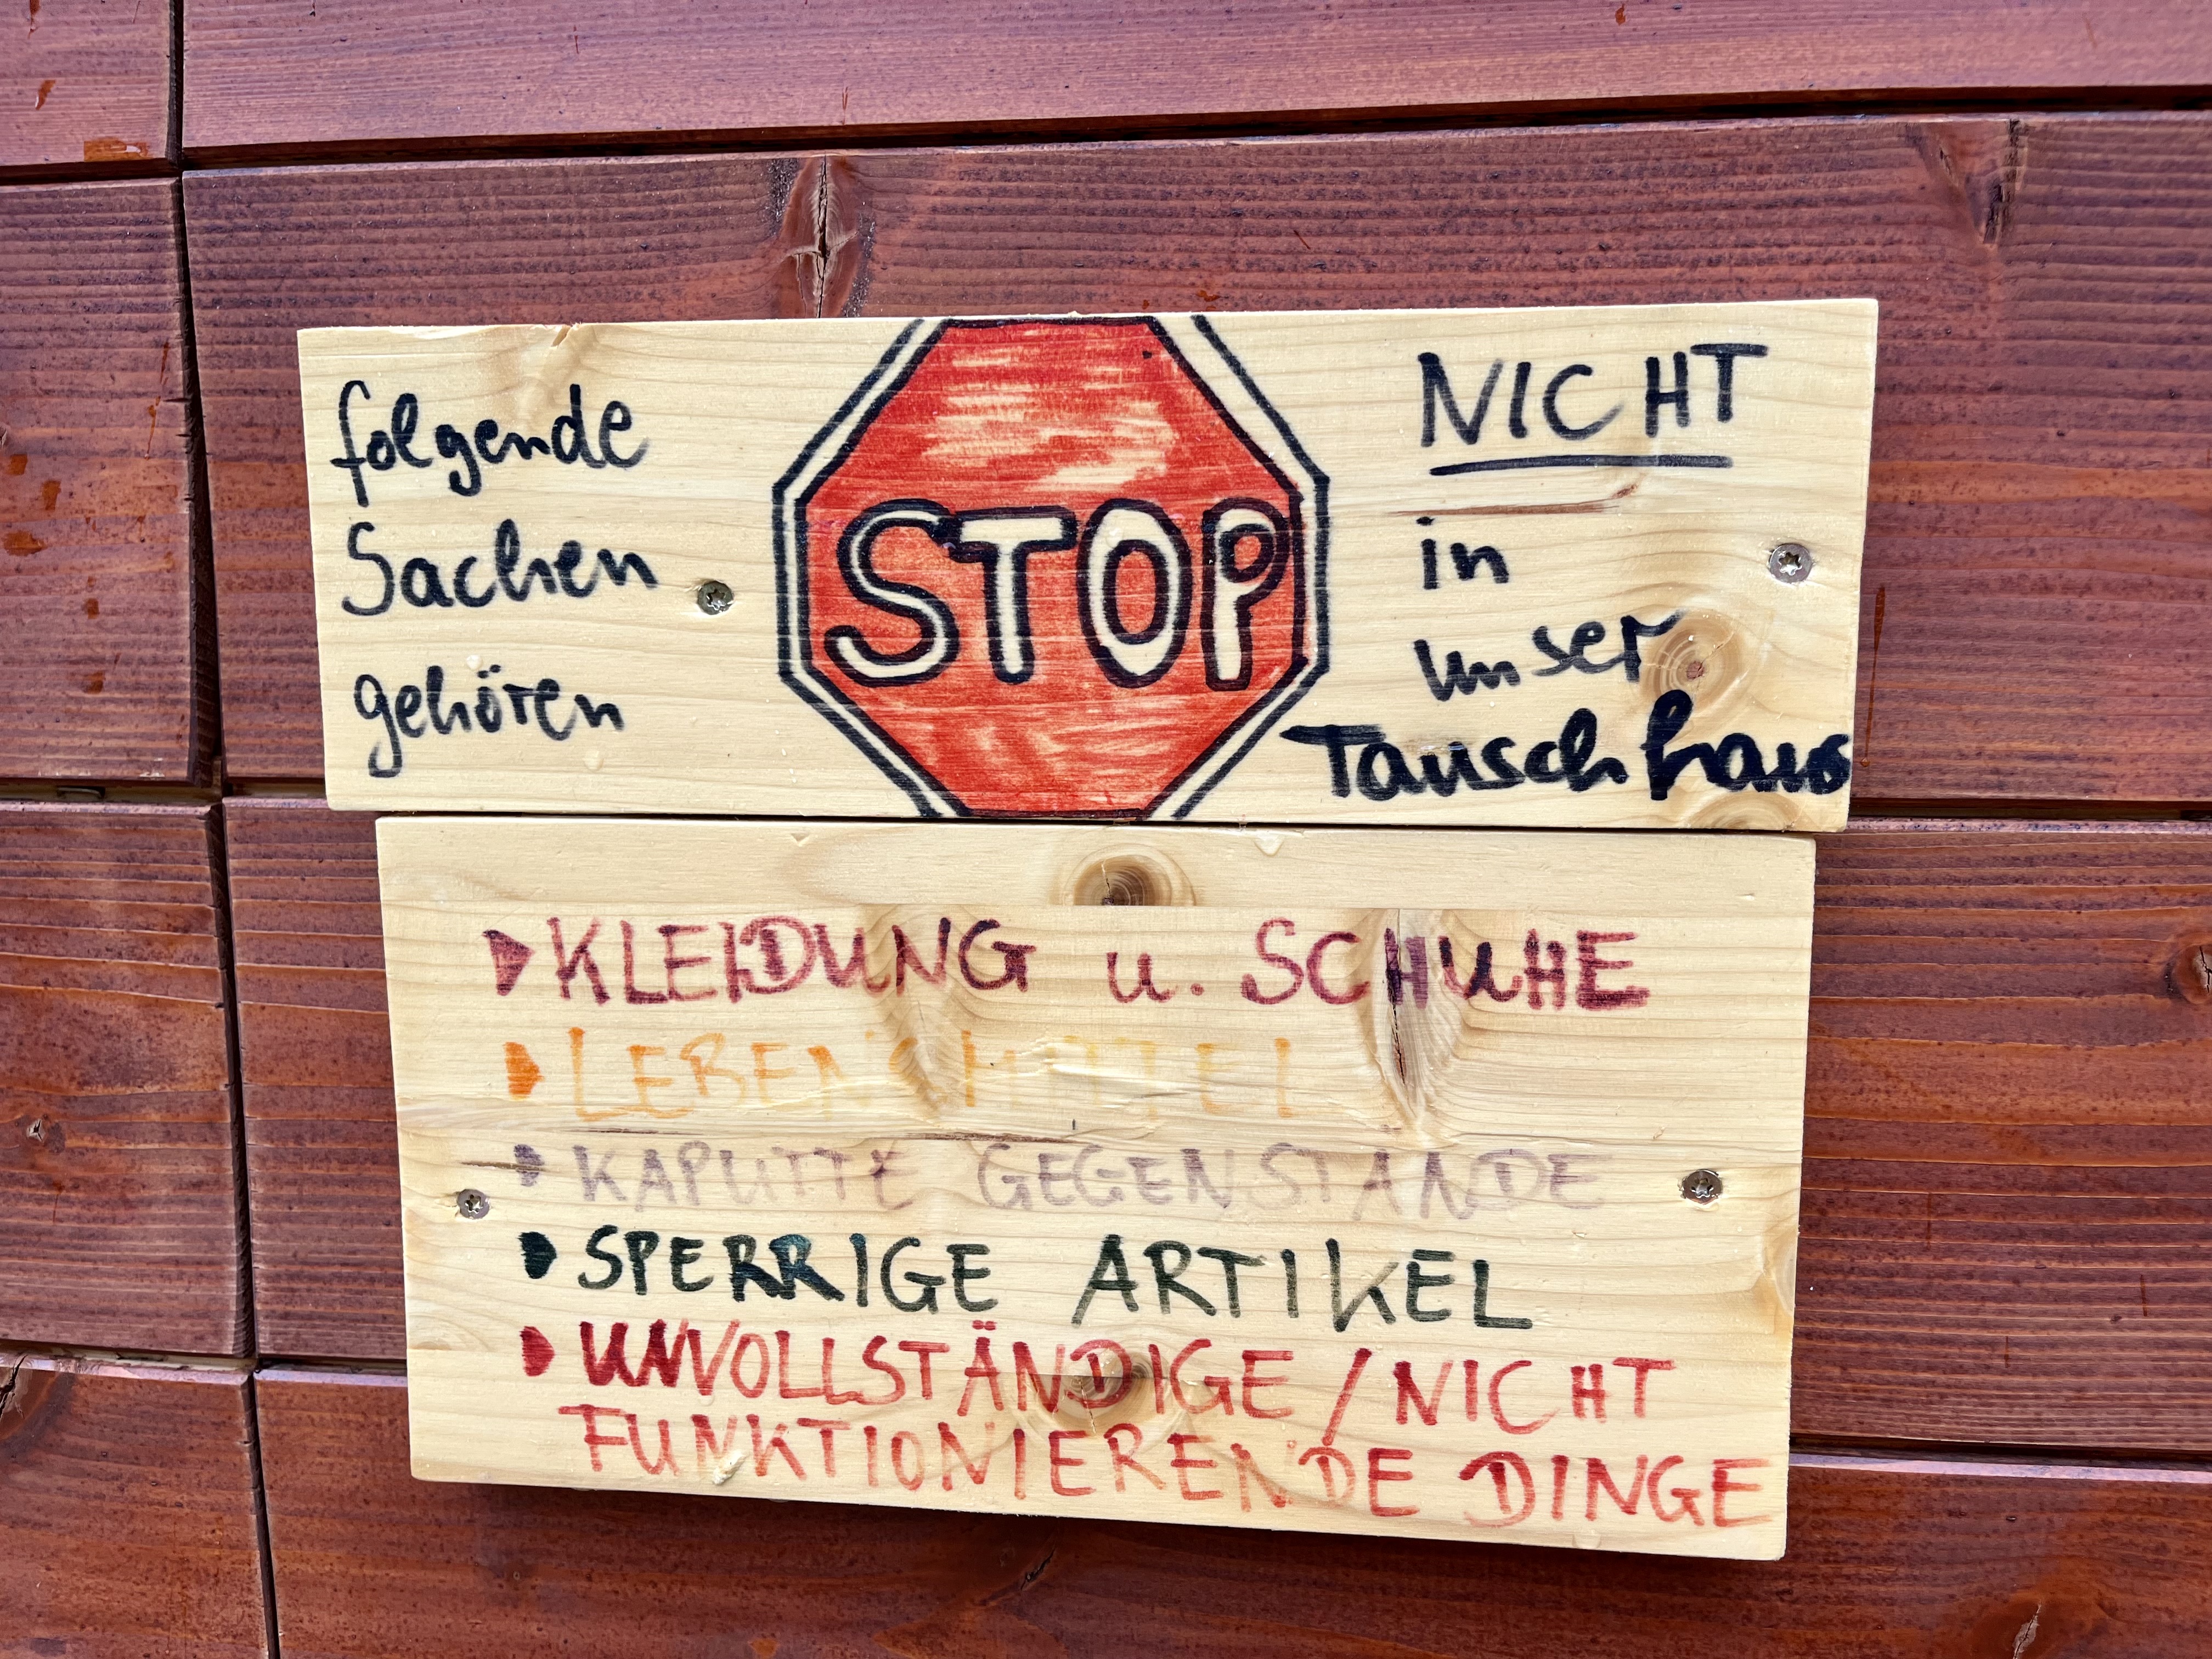 folgende
Sachen
gehören
STOP
NICHT
in
unser
Tauschhaus
KLEIDUNG u. SCHUHE
LEBENSMITTEL
KAPUTTE GEGENSTÄNDE
SPERRIGE ARTIKEL
UNVOLLSTÄNDIGE / NICHT
FUNKTIONIERENDE DINGE